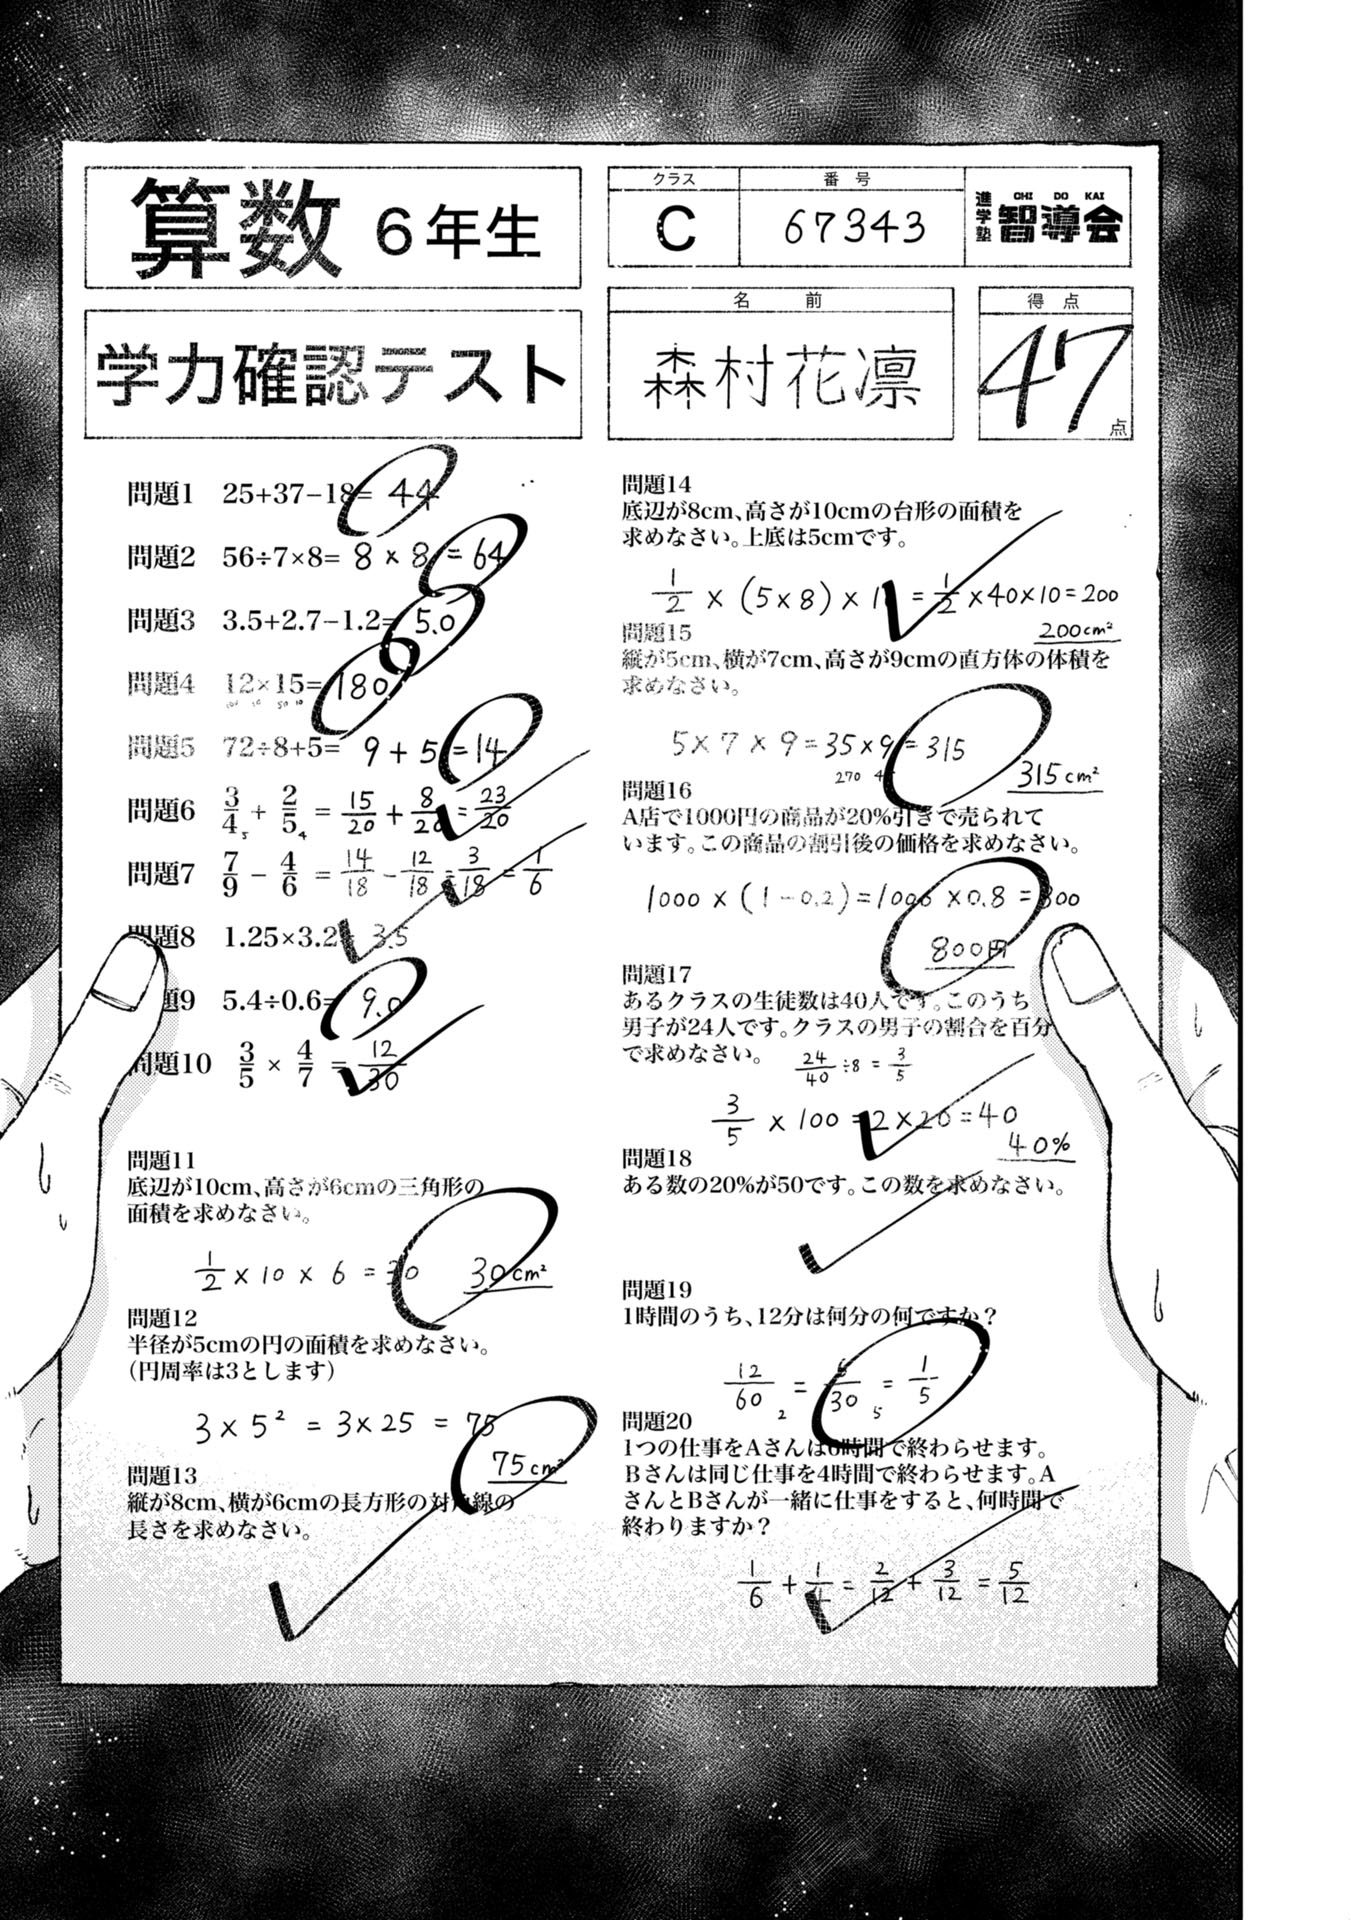 算数 6年生
学力確認テスト
クラス
C
番号
67343
進学塾
CHI DO KAI
智導会
名前
森村花凛
得点
47
点
問題1 25+37−18= 44
問題2 56÷7×8= 8×8=64
問題3 3.5+2.7−1.2= 5.0
問題4 12×15= 180
問題5 72÷8+5= 9+5=14
問題6 3/4 + 2/5 = 15/20 + 8/20 = 23/20
問題7 7/9 − 4/6 = 14/18 − 12/18 = 3/18 = 1/6
問題8 1.25×3.2= 3.5
題9 5.4÷0.6= 9.0
問題10 3/5 × 4/7 = 12/30
問題11
底辺が10cm、高さが6cmの三角形の
面積を求めなさい。
1/2 × 10 × 6 = 30
30cm²
問題12
半径が5cmの円の面積を求めなさい。
(円周率は3とします)
3×5² = 3×25 = 75
75cm²
問題13
縦が8cm、横が6cmの長方形の対角線の
長さを求めなさい。
問題14
底辺が8cm、高さが10cmの台形の面積を
求めなさい。上底は5cmです。
1/2 × (5×8) × 10 = 1/2 ×40×10=200
200cm²
問題15
縦が5cm、横が7cm、高さが9cmの直方体の体積を
求めなさい。
5×7×9=35×9=315
315cm²
問題16
A店で1000円の商品が20%引きで売られて
います。この商品の割引後の価格を求めなさい。
1000×(1−0.2)=1000×0.8=800
800円
問題17
あるクラスの生徒数は40人です。このうち
男子が24人です。クラスの男子の割合を百分
で求めなさい。
24/40 ÷8 = 3/5
3/5 × 100 = 2×20=40
40%
問題18
ある数の20%が50です。この数を求めなさい。
問題19
1時間のうち、12分は何分の何ですか?
12/60 = 6/30 = 1/5
問題20
1つの仕事をAさんは6時間で終わらせます。
Bさんは同じ仕事を4時間で終わらせます。A
さんとBさんが一緒に仕事をすると、何時間で
終わりますか?
1/6 + 1/4 = 2/12 + 3/12 = 5/12